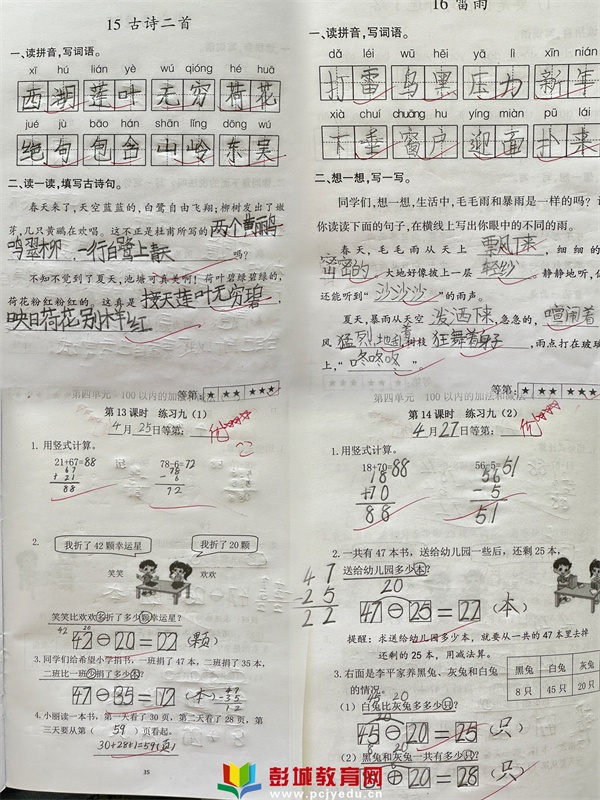 15 古诗二首
一、读拼音,写词语。
xī hú lián yè wú qióng hé huā
西湖 莲叶 无穷 荷花
jué jù bāo hán shān lǐng dōng wú
绝句 包含 山岭 东吴
二、读一读,填写古诗句。
春天来了,天空蓝蓝的,白鹭自由飞翔;柳树发出了嫩
芽,几只黄鹂在欢唱。这不正是杜甫所写的两个黄鹂
鸣翠柳,一行白鹭上青天吗?
不知不觉到了夏天,池塘可真美啊!荷叶碧绿碧绿的,
荷花粉红粉红的。这真是接天莲叶无穷碧,
映日荷花别样红
等第:★ ★★ ★★★
16 雷雨
一、读拼音,写词语。
dǎ léi wū hēi yā lì xīn nián
打雷 乌黑 压力 新年
xià chuí chuāng hu yíng miàn pū lái
下垂 窗户 迎面 扑来
二、想一想,写一写。
同学们,想一想,生活中,毛毛雨和暴雨是一样的吗?
你读读下面的句子,在横线上写出你眼中的不同的雨。
春天,毛毛雨从天上飘下来,细细的
密密的,大地好像披上一层轻纱。静静地听,
还能听到“沙沙沙”的雨声。
夏天,暴雨从天空泼洒下来,急急的,喧闹着
风猛烈地乱着树枝狂舞着身子,雨点打在玻
上,“咚咚咚”
等第:★ ★★ ★★★
第四单元 100以内的加法
第13课时 练习九(1)
4月25日等第: 优
1. 用竖式计算。
21+67=88 78-6=72
67
+21
88
78
-6
72
2.
我折了42颗幸运星 我折了20颗
笑笑 欢欢
笑笑比欢欢多折了多少颗幸运星?
42 20
42-20=22(颗)
3.同学们给希望小学捐书,一班捐了47本,二班捐了35本,
二班比一班少捐了多少本?
47-35=12(本)
47
-35
12
4.小丽读一本书,第一天看了30页,第二天看了28页,第
三天要从第(59)页看起。
30+28+1=59(页)
35
第四单元 100以内的加法和减法
第14课时 练习九(2)
4月27日等第: 优
1.用竖式计算。
18+70=88 56-5=51
18
+70
88
56
-5
51
2.一共有47本书,送给幼儿园一些后,还剩25本,
送给幼儿园多少本?
47
-25
22
20
47-25=22(本)
提醒:求送给幼儿园多少本,就要从一共的47本里去掉
还剩的25本,用减法算。
3.右面是李平家养黑兔、灰兔和白兔
的情况。
黑兔 白兔 灰兔
8只 45只 20只
(1)白兔比灰兔多多少只?
45 20
45-20=25(只)
(2)黑兔和灰兔一共有多少只?
8 20
8+20=28(只)
彭城教育网
www.pcjyedu.cn